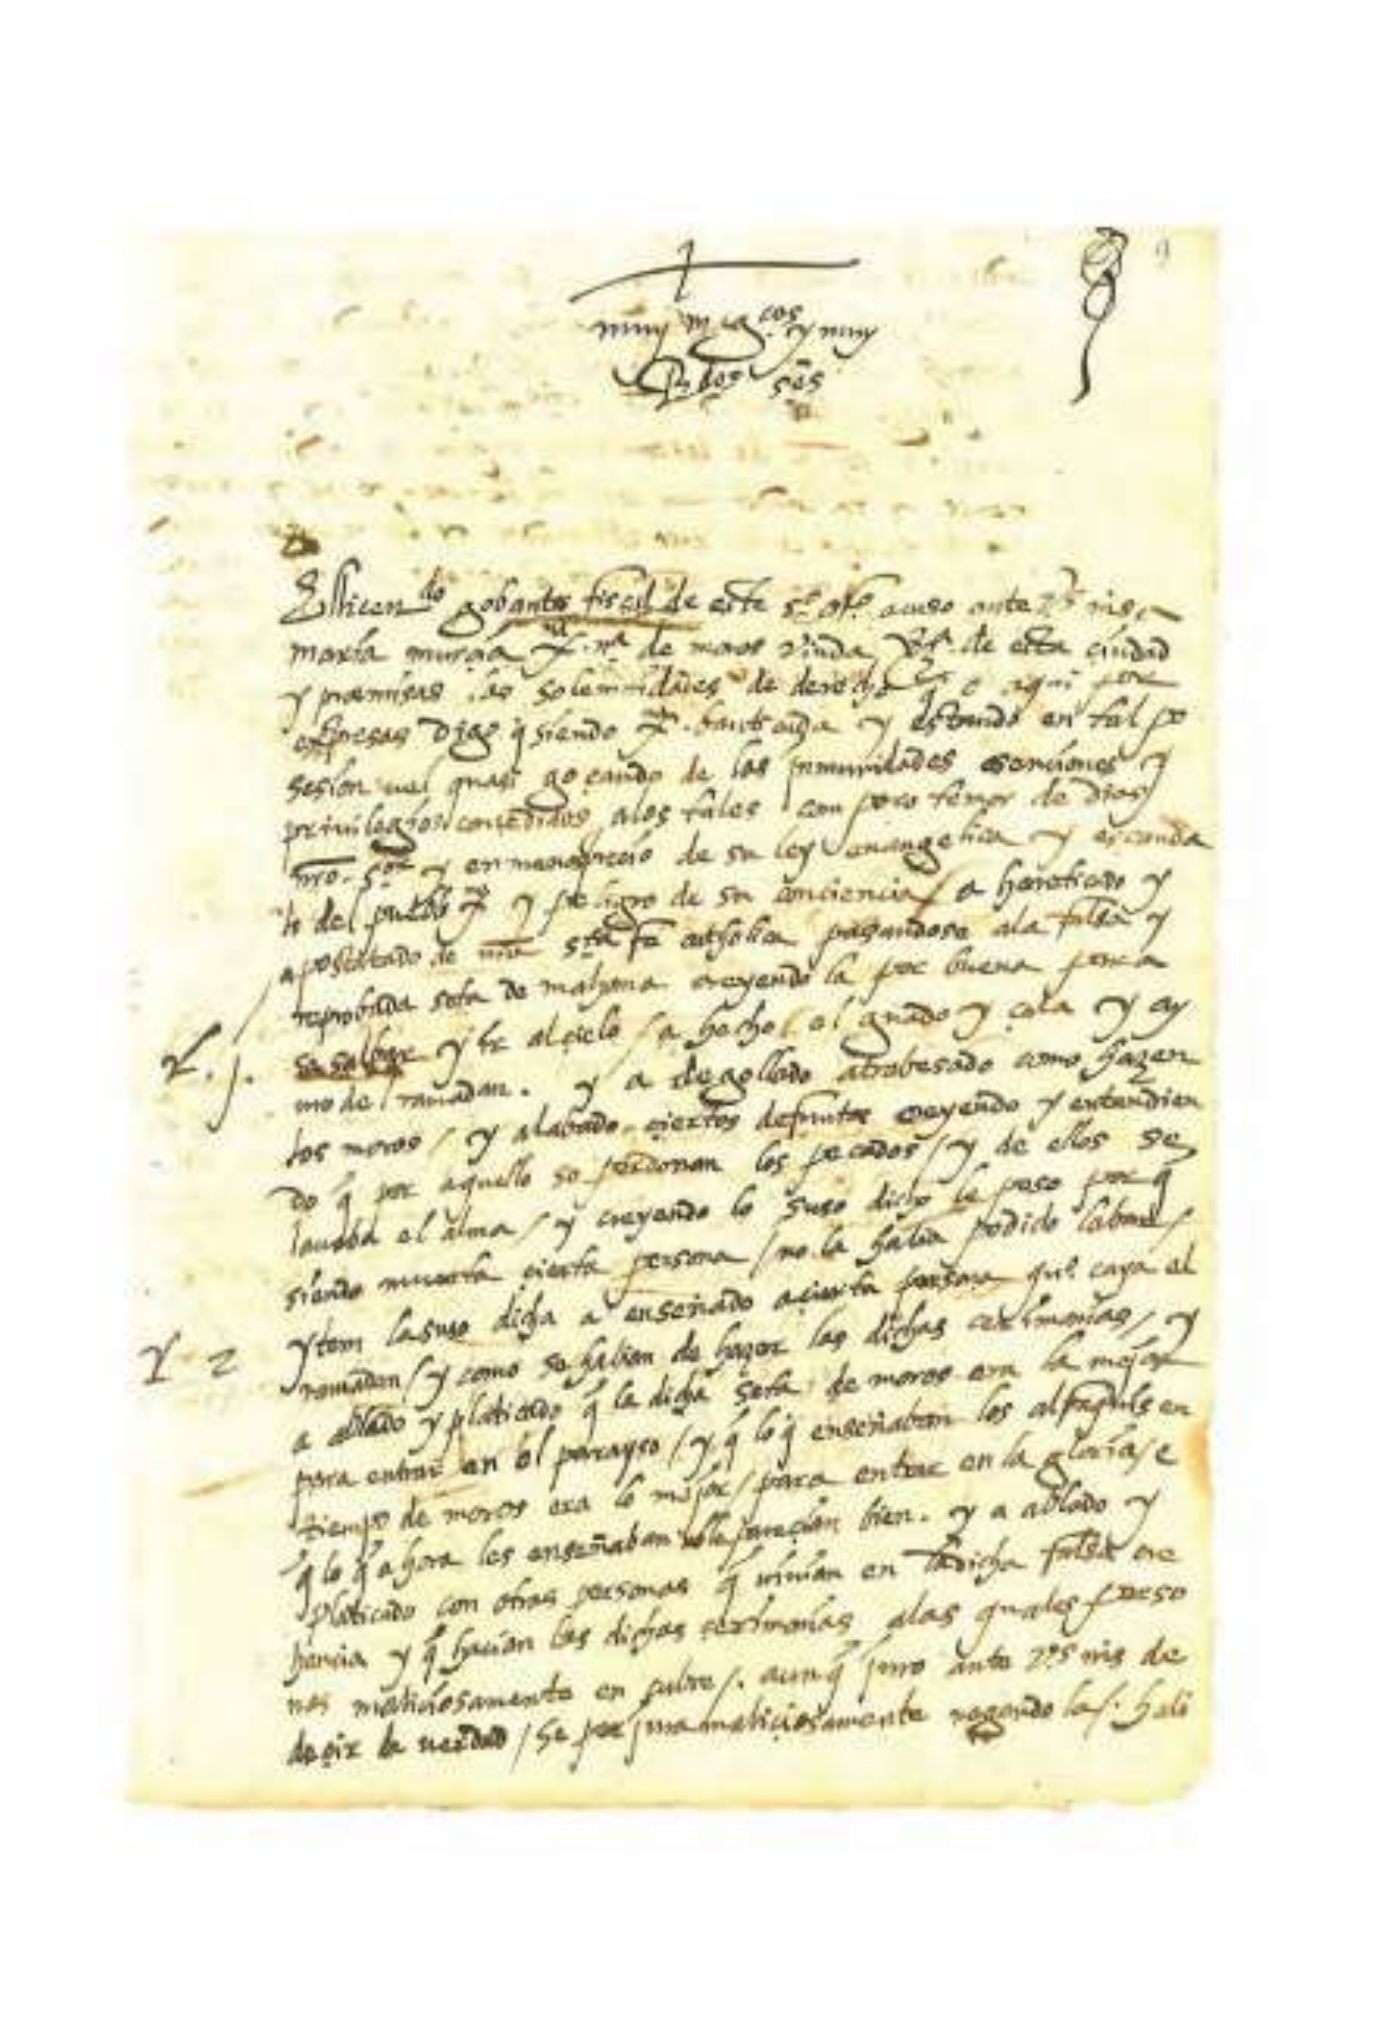 9
muy mag.cos y muy
Rdos s.es
El licen.do gobantes fiscal de este s.to off.o acuso ante v.s ms. a
maria murcia x.na n.a de moros viuda v.a de esta ciudad
y premisas las solemnidades de derecho q e aqui por
espresas Digo q siendo x.na bautizada y estando en tal po
sesion vel quasi goçando de las ynmunidades esenciones y
privilegios concedidos a los tales con poco temor de dios
nro. s.or y en menosprecio de su ley evangelica y escanda
lo del pueblo x.no y peligro de su conciencia / a hereticado y
apostatado de nra s.ta fe catholica pasandose ala falsa y
reprobada seta de mahoma creyendo la por buena para
y. 1. se salbar y ir al cielo / a hecho / el guado y çala y ay
uno del ramadan. y a degollado atrabesado como hazen
los moros / y alabado ciertos defuntos creyendo y entendien
do q por aquello se perdonan los pecados / y de ellos se
lauaba el alma / y creyendo lo suso dicho le peso por q
siendo muerta cierta persona / no la habia podido labar /
y 2 ytem la suso dicha a enseñado a cierta persona que caya el
romadan / y como se habian de hazer las dichas cerimonias / y
a ablado y platicado q la dicha seta de moros era la mejor
para entrar en el parayso / y q lo q enseñaban los alfaquis en
tiempo de moros era lo mejor / para entrar en la gloria / e
q lo q ahora les enseñaban no le pareçian bien. y a ablado y
platicado con otras personas q uiuian en la dicha falsa cre
hencia y q hacian las dichas cerimonias alas quales perso
nas maliciosamente en cubre /. aunq juro ante v.s ms de
deçir la uerdad / se perjura maliciosamente negando la /. hali